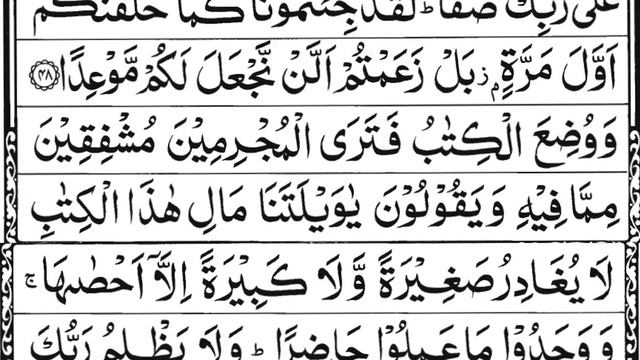 عَلٰى رَبِّكَ صَفًّا ؕ لَقَدْ جِئْتُمُوْنَا كَمَا خَلَقْنٰكُمْ
اَوَّلَ مَرَّةٍۭ ز بَلْ زَعَمْتُمْ اَلَّنْ نَّجْعَلَ لَكُمْ مَّوْعِدًا ﴿۴۸﴾
وَ وُضِعَ الْكِتٰبُ فَتَرَى الْمُجْرِمِيْنَ مُشْفِقِيْنَ
مِمَّا فِيْهِ وَ يَقُوْلُوْنَ يٰوَيْلَتَنَا مَالِ هٰذَا الْكِتٰبِ
لَا يُغَادِرُ صَغِيْرَةً وَّلَا كَبِيْرَةً اِلَّاۤ اَحْصٰىهَا ۚ
وَ وَجَدُوْا مَا عَمِلُوْا حَاضِرًا ؕ وَلَا يَظْلِمُ رَبُّكَ